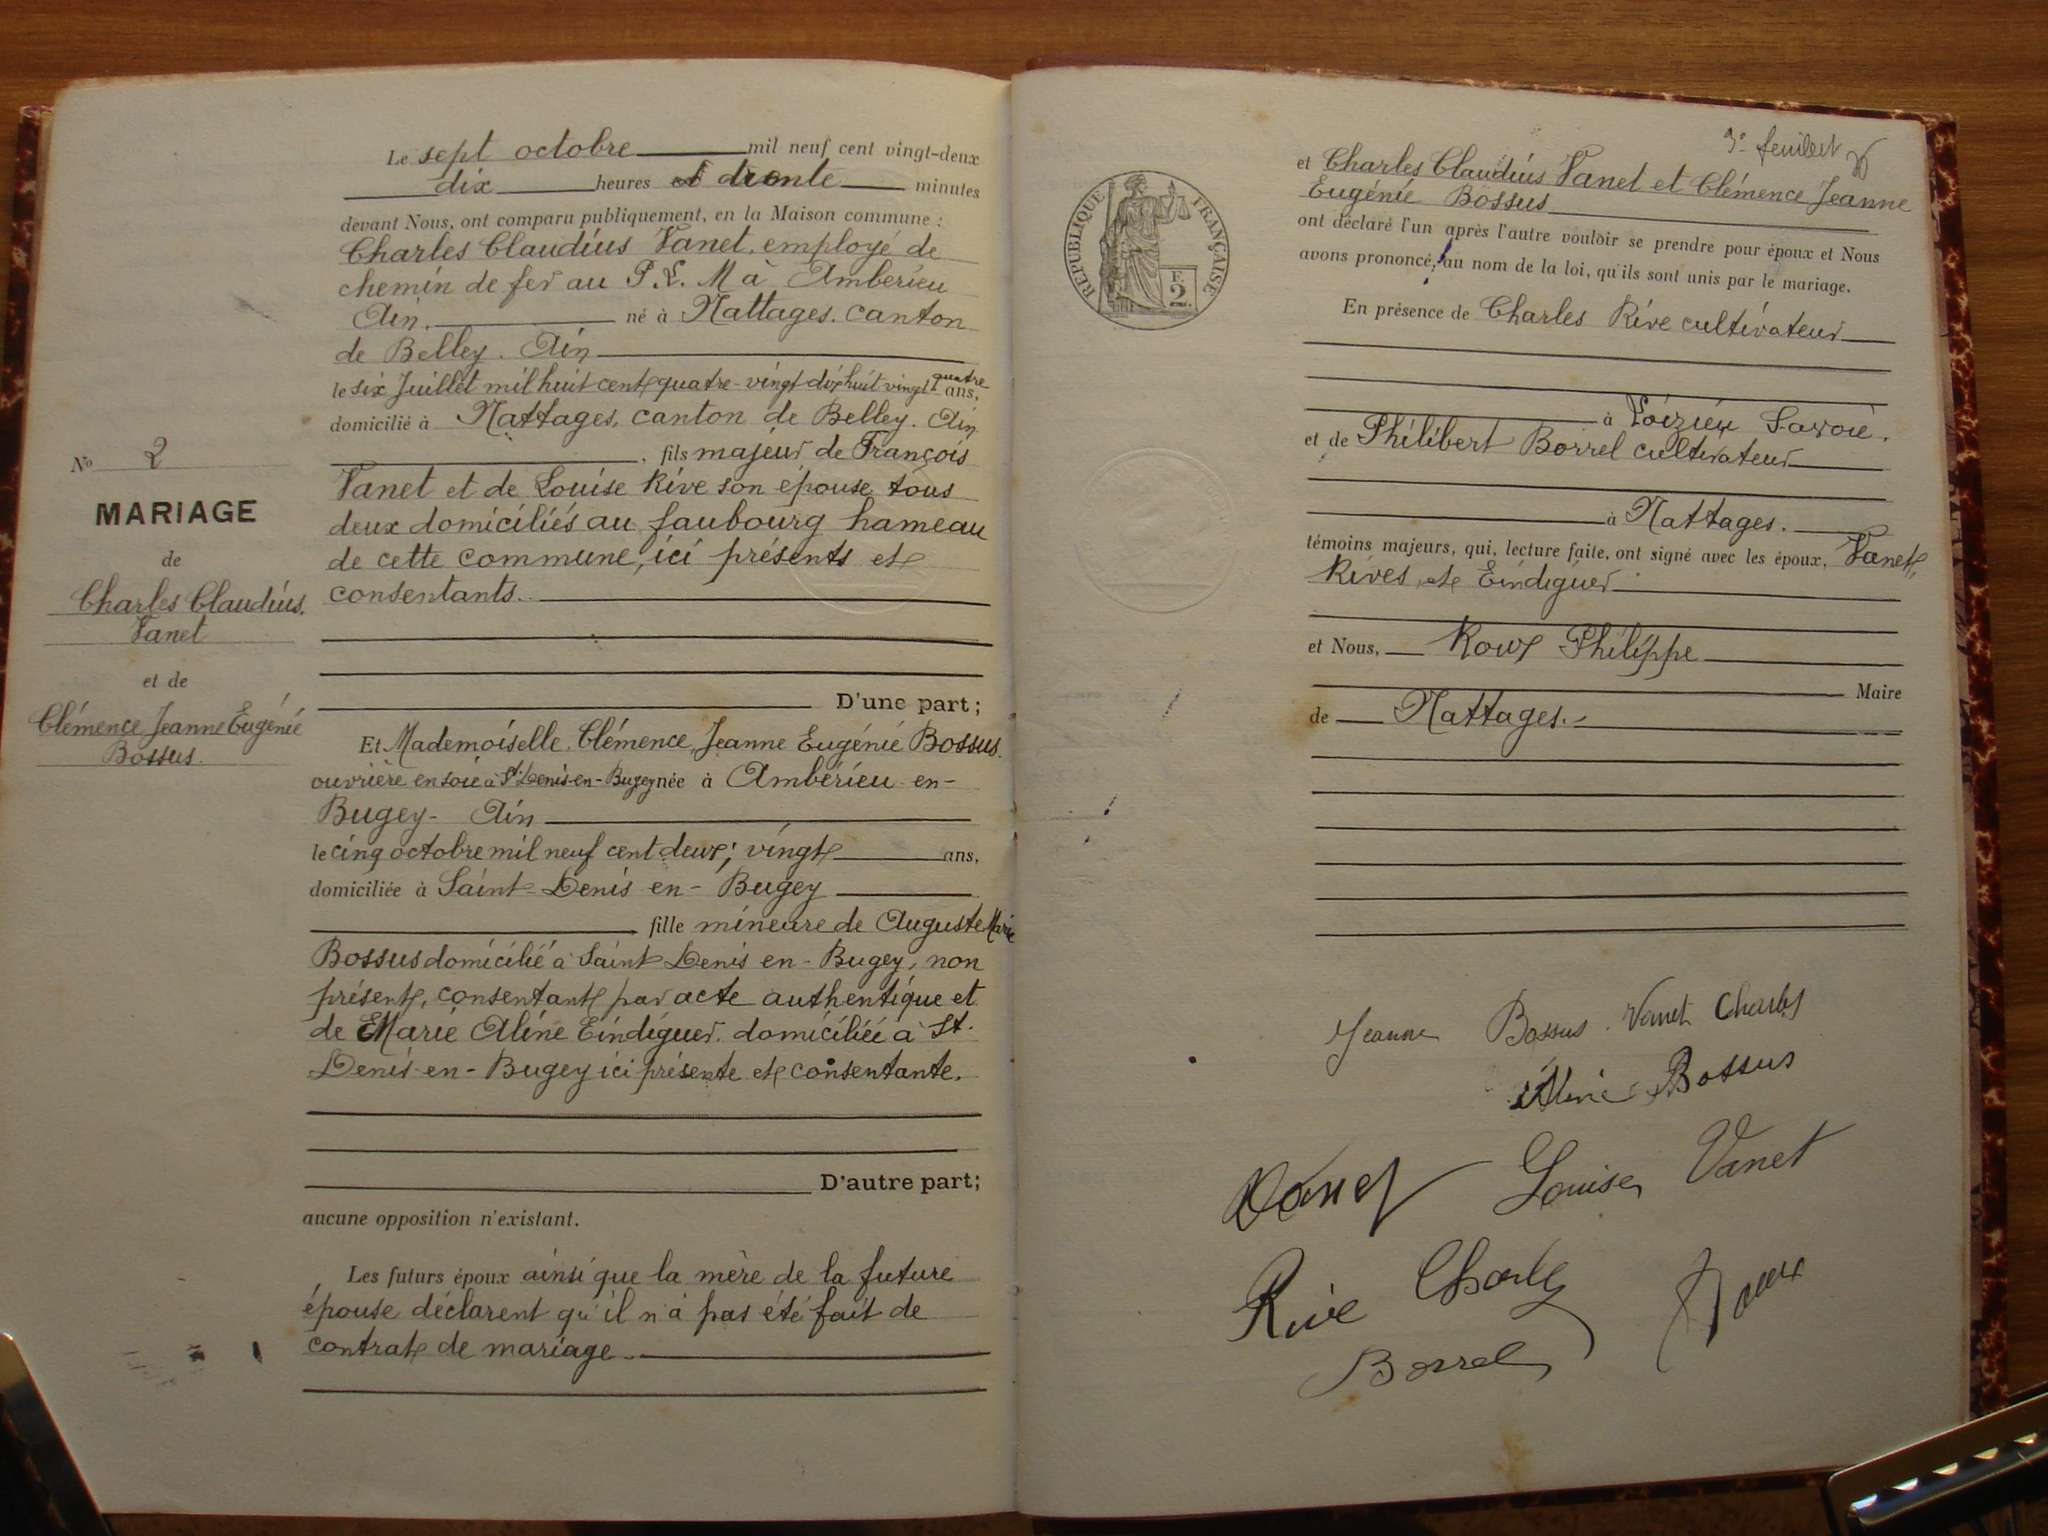 Le sept octobre mil neuf cent vingt-deux
dix heures et trente minutes
devant Nous, ont comparu publiquement, en la Maison commune :
Charles Claudius Vanet, employé de
chemin de fer au P. L. M à Ambérieu
Ain. né à Nattages. canton
de Belley. Ain
le six Juillet mil huit cent quatre-vingt-dix huit vingt quatre ans,
domicilié à Nattages, canton de Belley. Ain
, fils majeur de François
Vanet et de Louise Rive son épouse tous
deux domiciliés au faubourg hameau
de cette commune, ici présents et
consentants.
D'une part ;
N° 2
MARIAGE
de
Charles Claudius
Vanet
et de
Clémence Jeanne Eugénie
Bossus.
Et Mademoiselle Clémence, Jeanne Eugénie Bossus
ouvrière en soie à St. Denis-en-Bugey née à Ambérieu-en-
Bugey- Ain
le cinq octobre mil neuf cent deux ; vingt ans,
domiciliée à Saint-Denis en-Bugey
, fille mineure de Auguste Marie
Bossus domicilié à Saint Denis en-Bugey, non
présent, consentant par acte authentique et
de Marie Aline Eindiguer. domiciliée à St.
Denis-en-Bugey ici présente et consentante.
D'autre part ;
aucune opposition n'existant.
Les futurs époux ainsi que la mère de la future
épouse déclarent qu'il n'a pas été fait de
contrat de mariage.
3e feuillet
RÉPUBLIQUE FRANÇAISE
2
et Charles Claudius Vanet et Clémence Jeanne
Eugénie Bossus
ont déclaré l'un après l'autre vouloir se prendre pour époux et Nous
avons prononcé, au nom de la loi, qu'ils sont unis par le mariage.
En présence de Charles Rive cultivateur
à Loizieux Savoie.
et de Philibert Borrel cultivateur
à Nattages.
témoins majeurs, qui, lecture faite, ont signé avec les époux, Vanet,
Rives, et Eindiguer
et Nous, Roux Philippe
Maire
de Nattages.
Jeanne Bossus Vanet Charles
Aline Bossus
Vanet Louise Vanet
Rive Charles Roux
Borrel